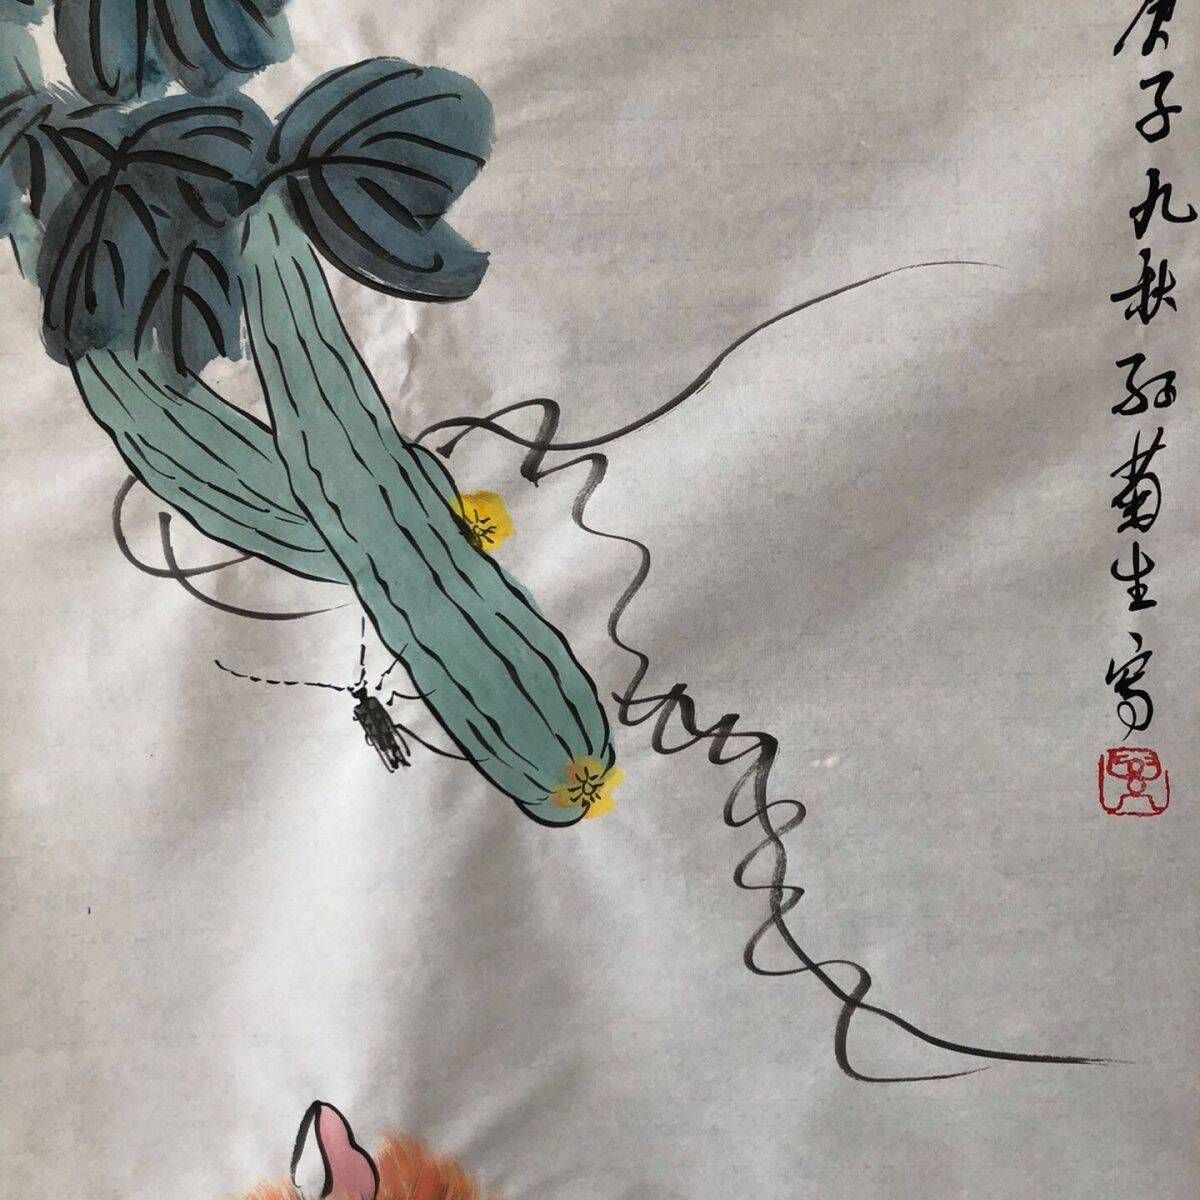 庚子九秋孙菊生写